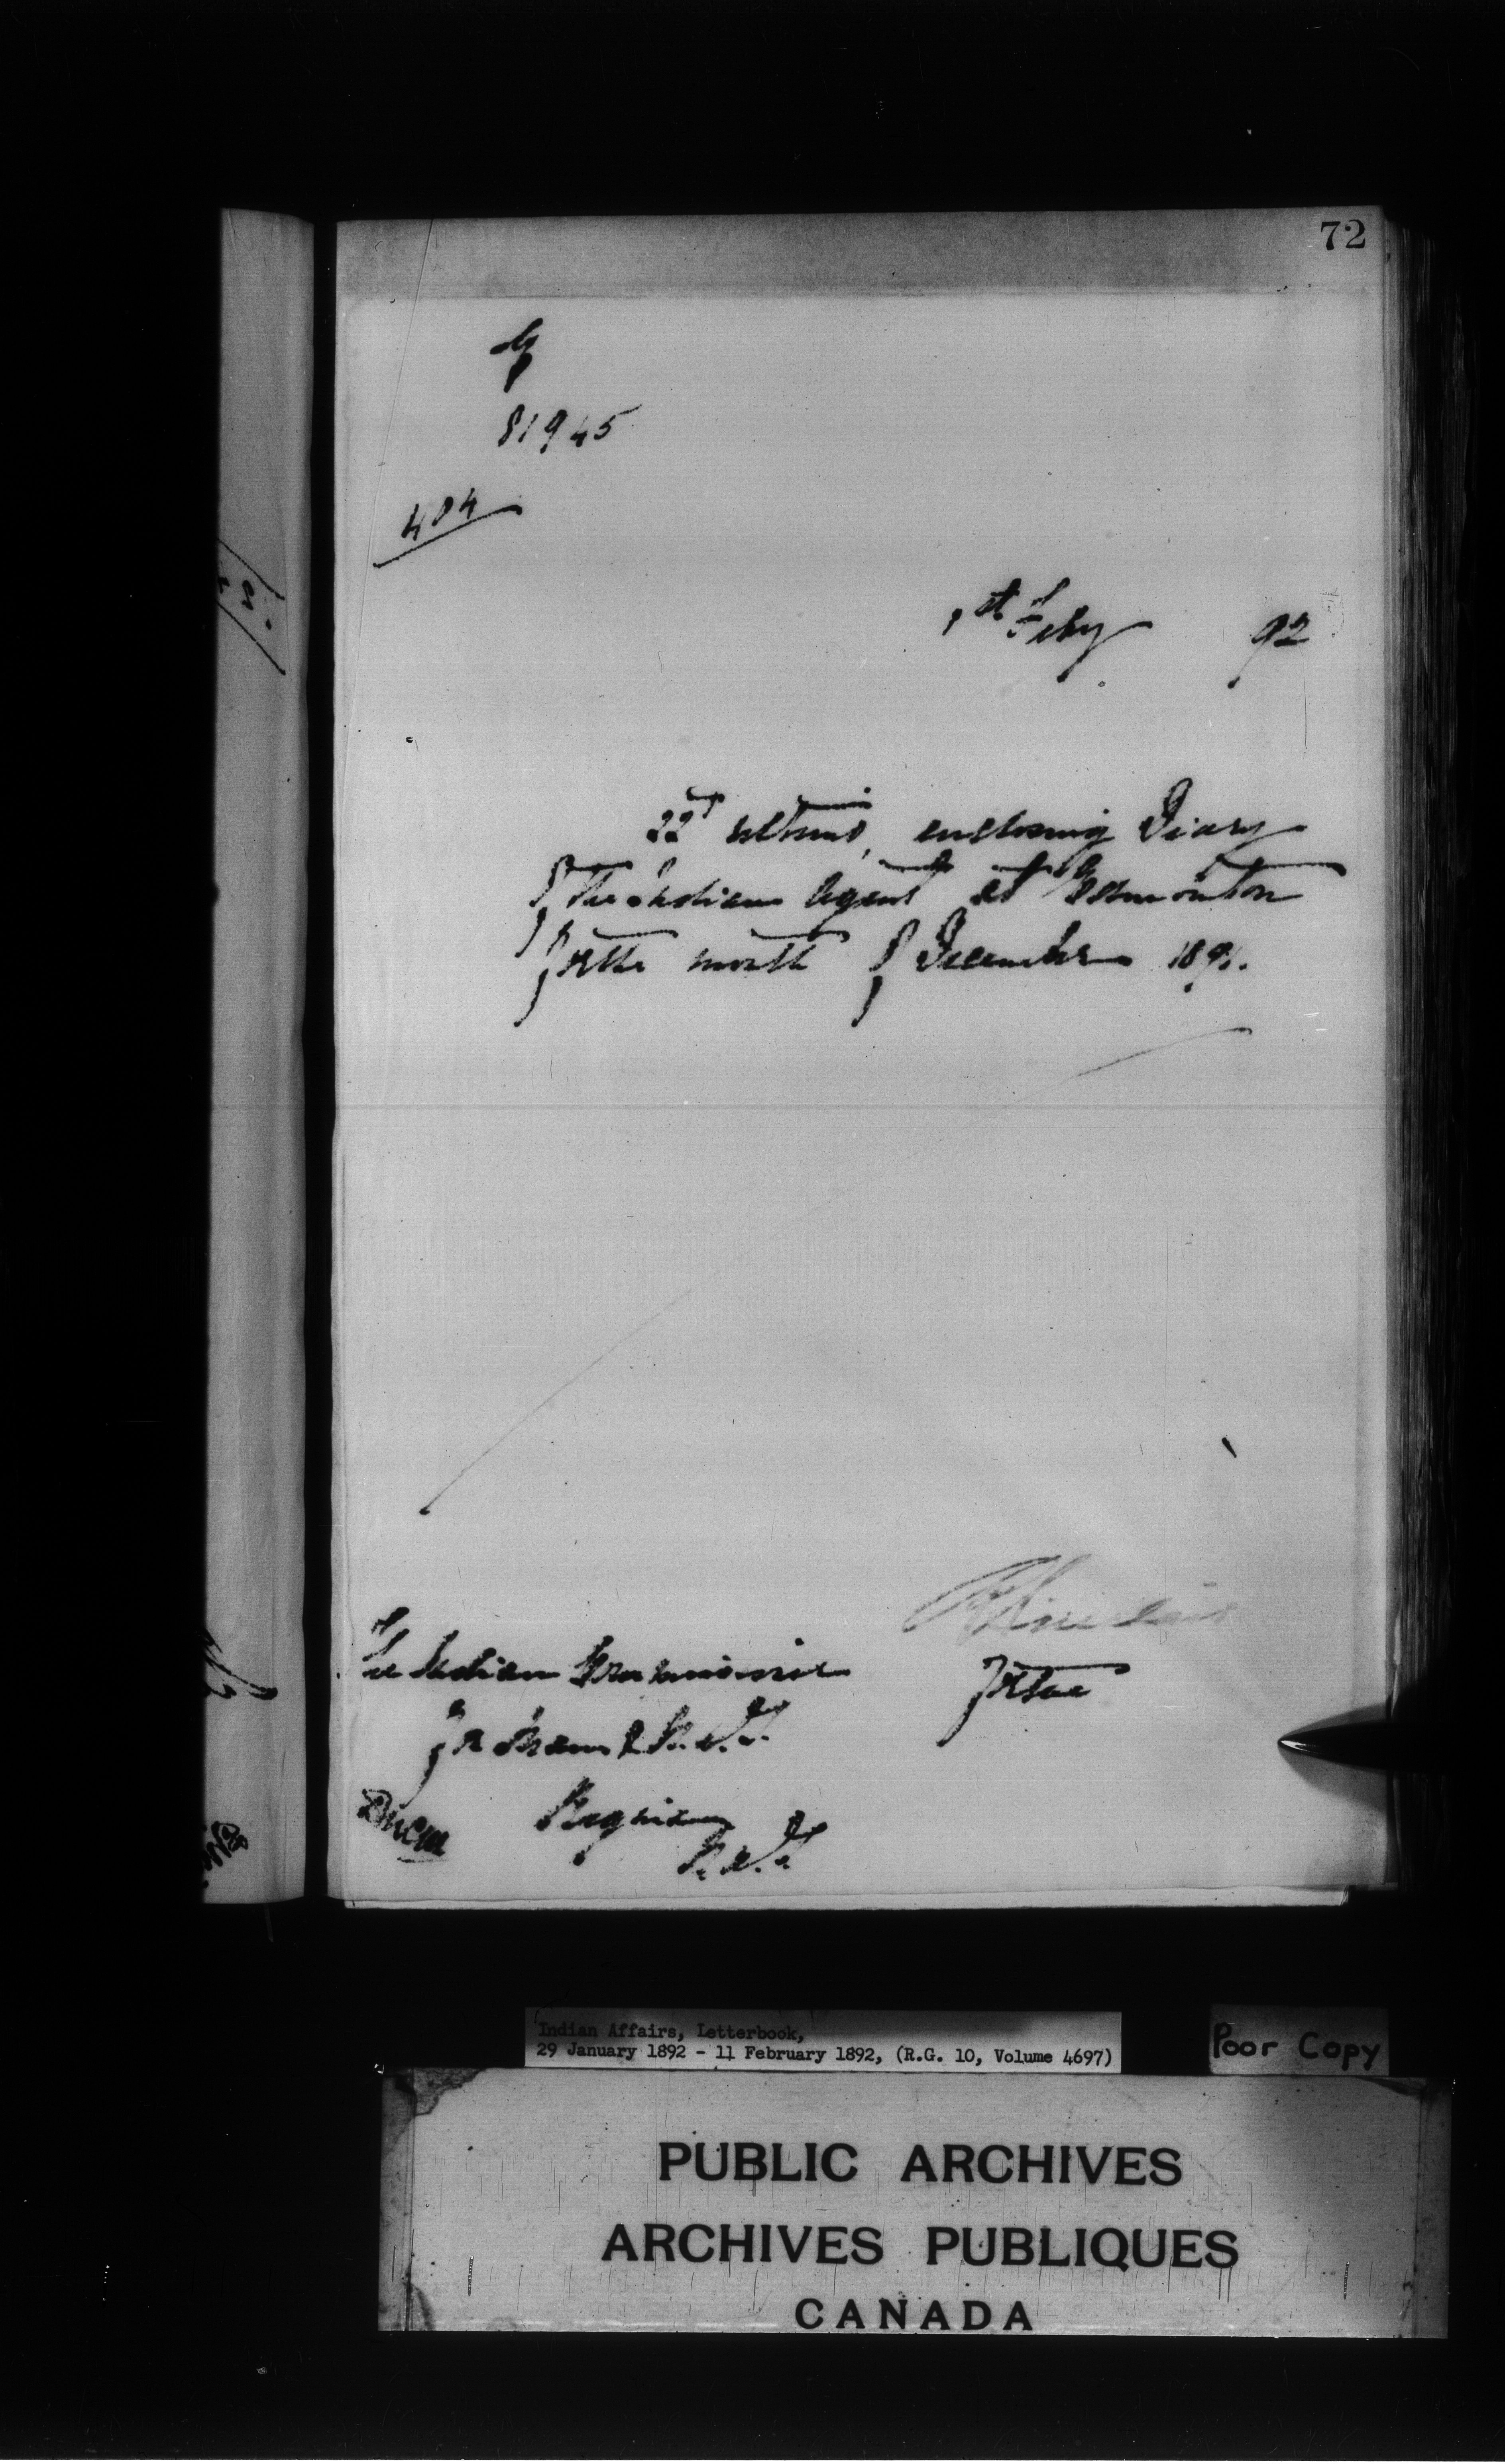 72
81945
484
1st Feby 92
22d ultimo, enclosing Diary
of the Indian Agent at Edmonton
for the month of December 1891.
The Indian Commissioner
for Man & N.W.T.
Regina
N.W.T.
DMCM
Indian Affairs, Letterbook,
29 January 1892 - 11 February 1892, (R.G. 10, Volume 4697)
Poor Copy
PUBLIC ARCHIVES
ARCHIVES PUBLIQUES
CANADA